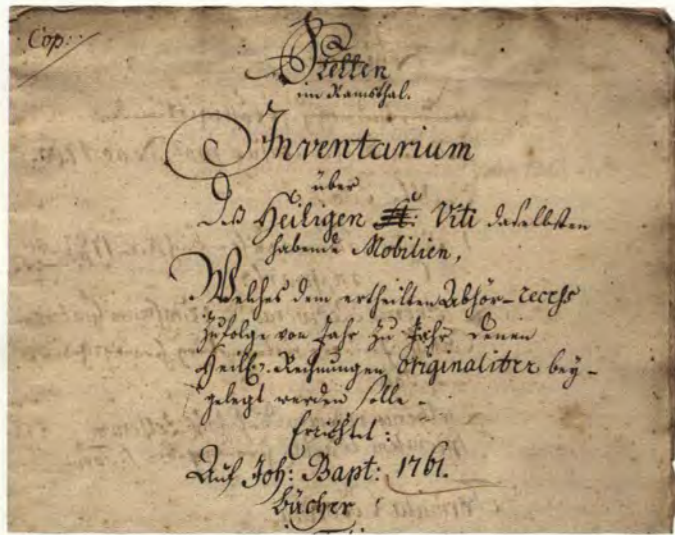 Cop:
Stetten
im Ramsthal.
Inventarium
über
Des Heiligen St: Viti daselbsten
habende Mobilien,
Welches dem ertheilten Abhör-recess
zufolge von Jahr zu Jahr denen
Heilig. Rechnungen originaliter bey-
gelegt werden solle.
Errichtet:
Auf Joh: Bapt: 1761.
bücher